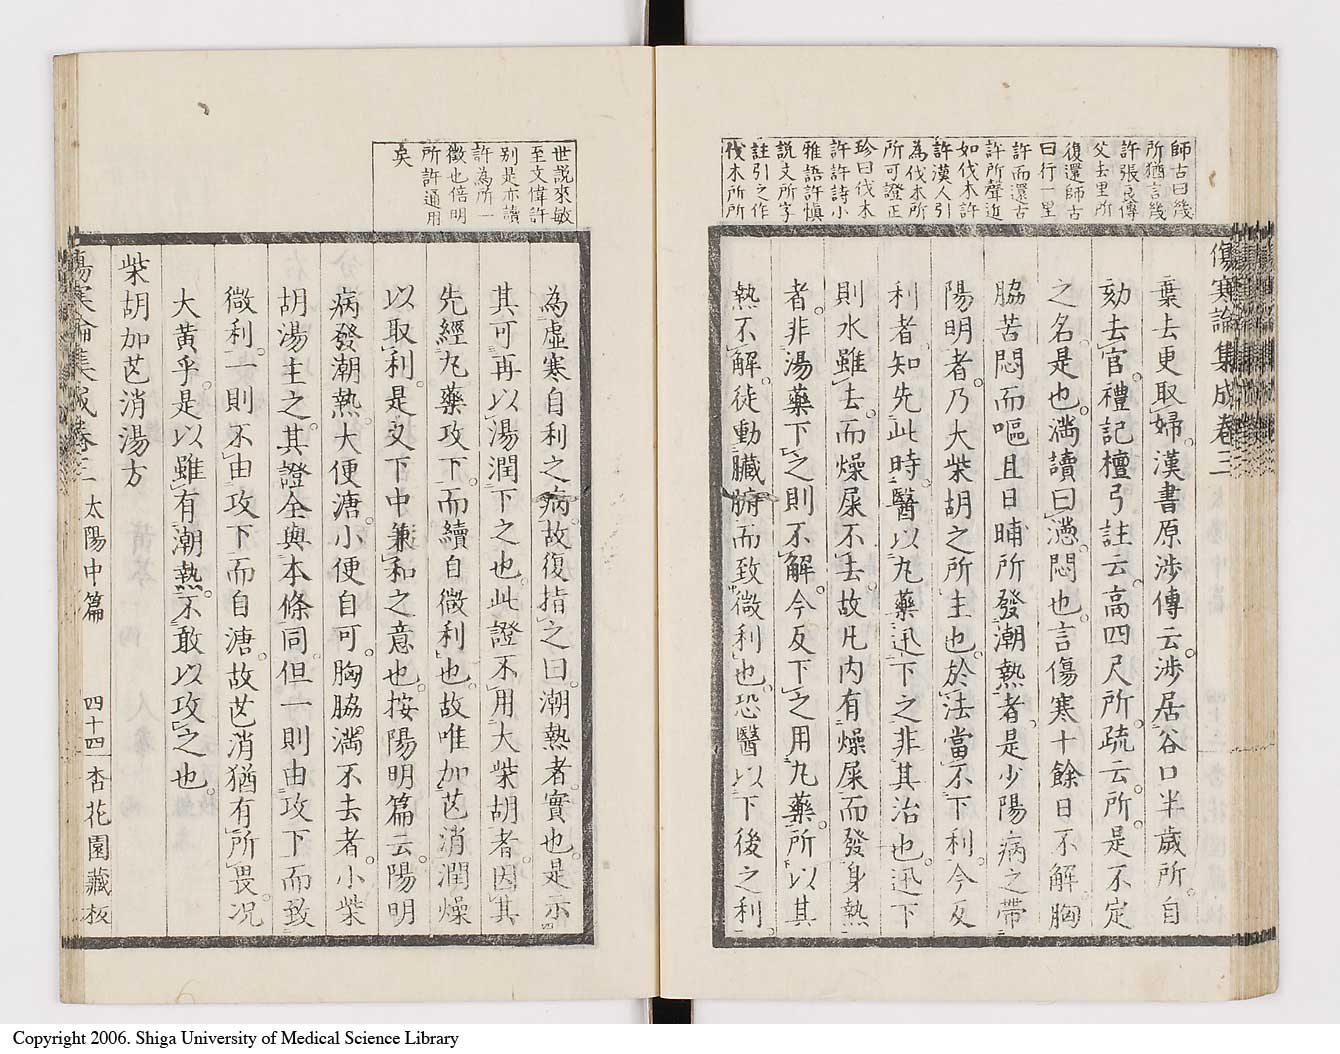 師古曰幾
所猶言幾
許張良傳
父去里所
復還師古
曰行一里
許而還古
許所聲近
如伐木許
許漢人引
為伐木所
所可證正
珍曰伐木
許許詩小
雅語許慎
說文所字
註引之作
伐木所所
傷寒論集成卷三
棄去更取婦漢書原涉傳云涉居谷口半歲所自
劾去官禮記檀弓註云高四尺所疏云所是不定
之名是也滿讀曰懣懣悶也言傷寒十餘日不解胸
脇苦悶而嘔且日晡所發潮熱者是少陽病之帶
陽明者乃大柴胡之所主也於法當不下利今反
利者知先此時醫以丸藥迅下之非其治也迅下
則水雖去而燥屎不去故凡内有燥屎而發身熱
者非湯藥下之則不解今反下之用丸藥所以其
熱不解徒動臟腑而致微利也恐醫以下後之利
世說來敏
至文偉許
別是亦讀
許為所一
徵也倍明
所許通用
矣
為虛寒自利之病故復指之曰潮熱者實也是示
其可再以湯潤下之也此證不用大柴胡者因其
先經丸藥攻下而續自微利也故唯加芒消潤燥
以取利是又下中兼和之意也按陽明篇云陽明
病發潮熱大便溏小便自可胸脇滿不去者小柴
胡湯主之其證全與本條同但一則由攻下而致
微利一則不由攻下而自溏故芒消猶有所畏况
大黃乎是以雖有潮熱不敢以攻之也
柴胡加芒消湯方
傷寒論集成卷三 太陽中篇 四十四 杏花園藏板
Copyright 2006. Shiga University of Medical Science Library